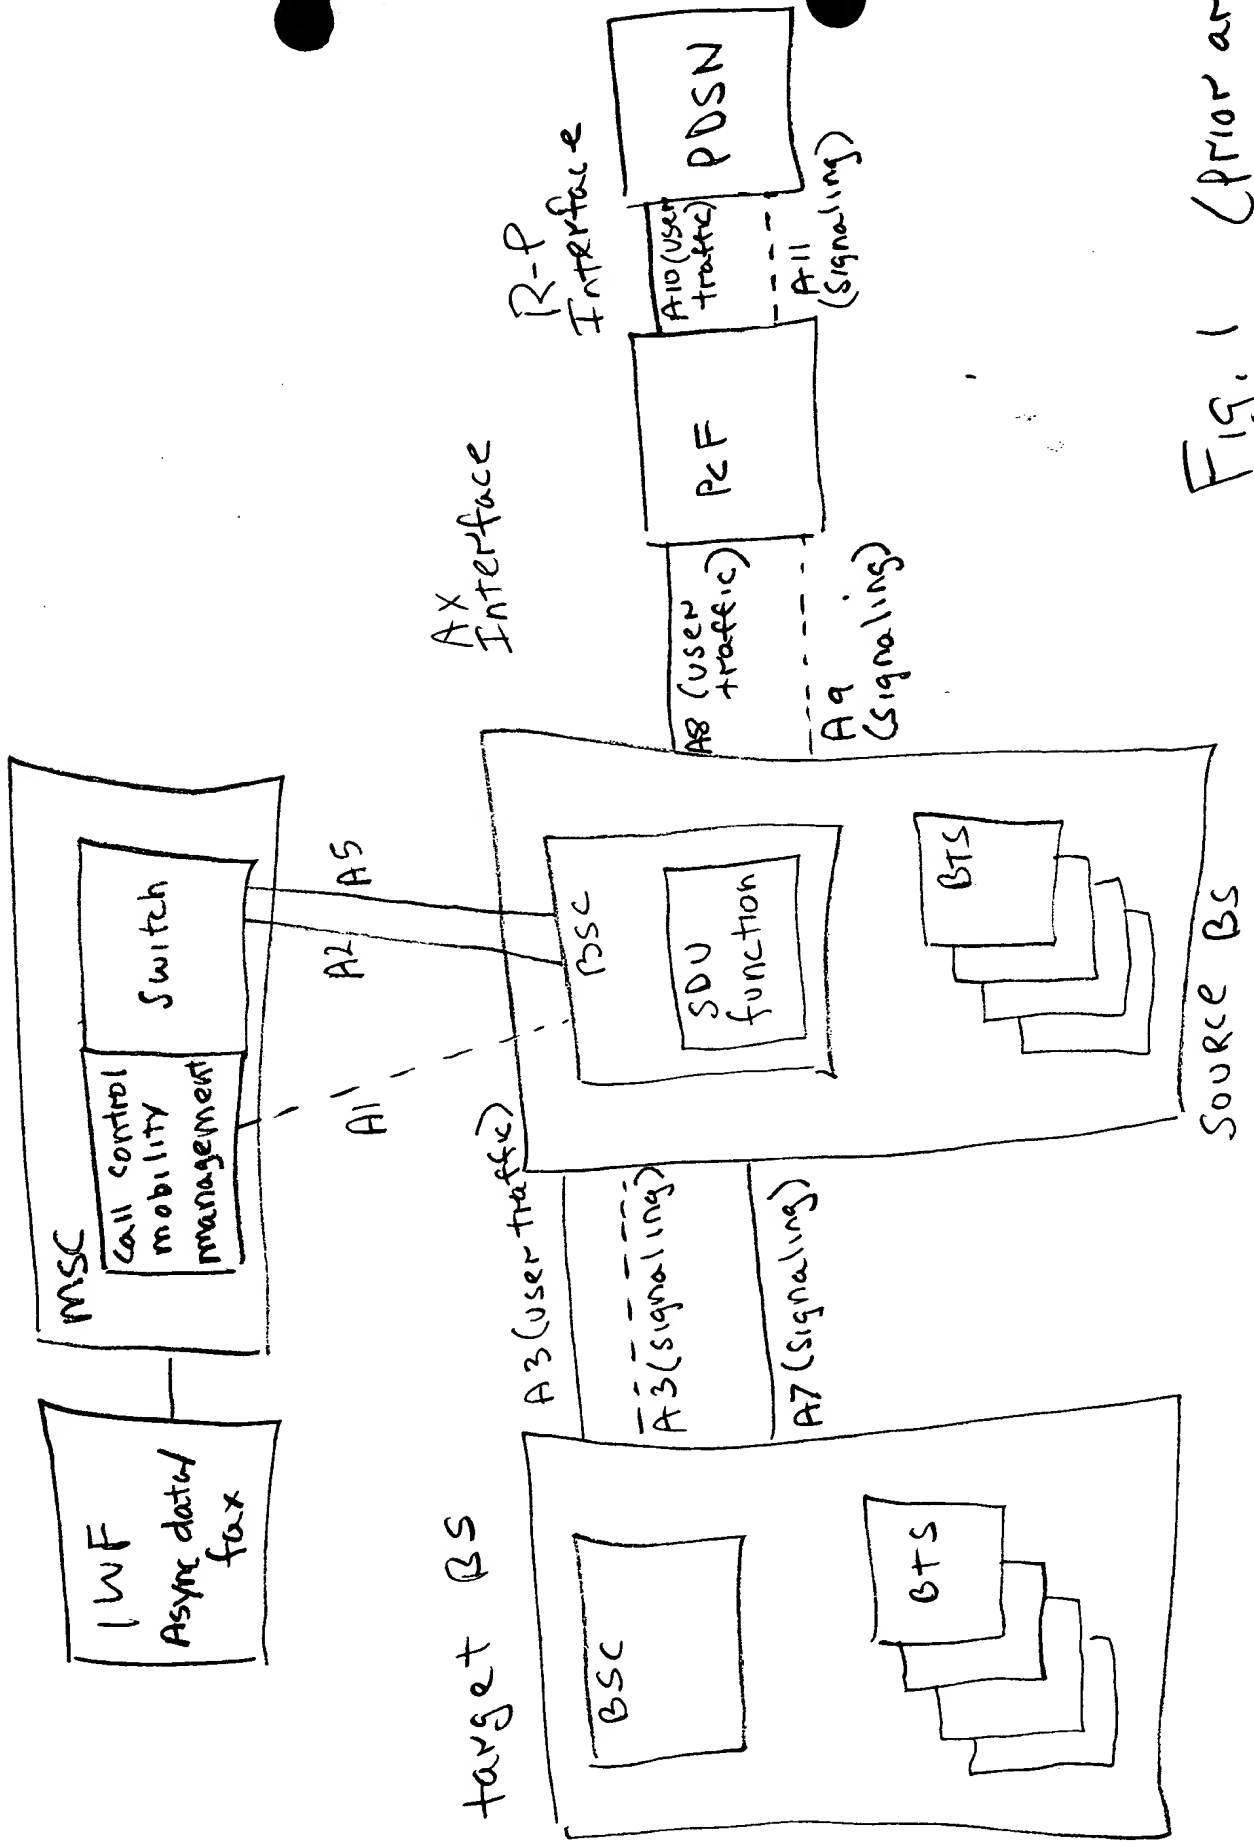 IWF
Async data/
fax
MSC
call control
mobility
management
Switch
A1
A2
A5
target BS
BSC
BTS
A3 (user traffic)
A3 (signaling)
A7 (signaling)
BSC
SDU
function
BTS
Source BS
Ax
Interface
A8 (user
traffic)
A9
(signaling)
PCF
R-P
Interface
A10 (user
traffic)
A11
(signaling)
PDSN
Fig. 1 (Prior ar